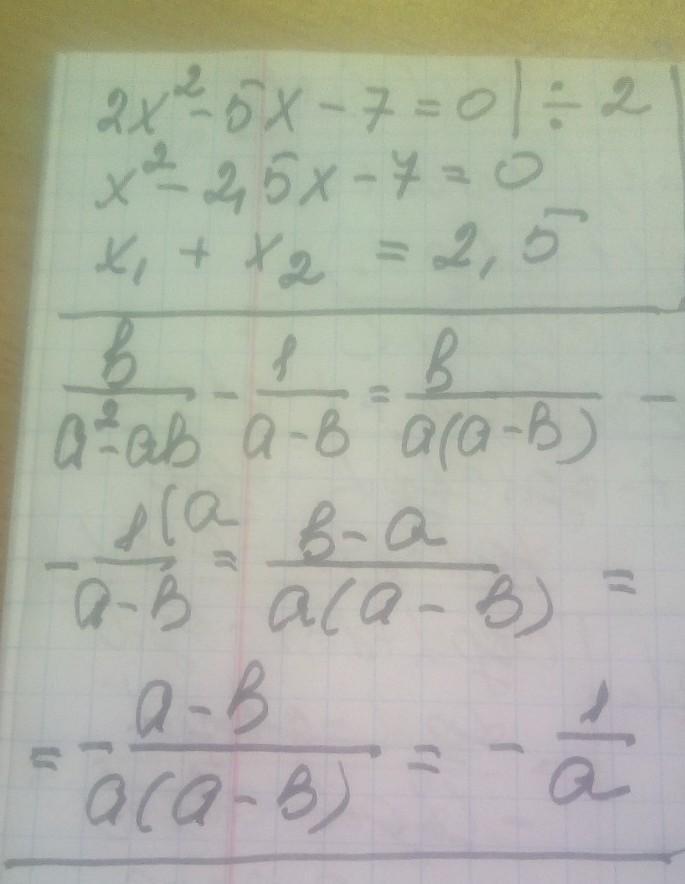 2x² - 5x - 7 = 0 | ÷ 2
x² - 2,5x - 7 = 0
x₁ + x₂ = 2,5
b/(a² - ab) - 1/(a - b) = b/(a(a - b)) -
- 1(a/(a - b) = (b - a)/(a(a - b)) =
= - (a - b)/(a(a - b)) = - 1/a